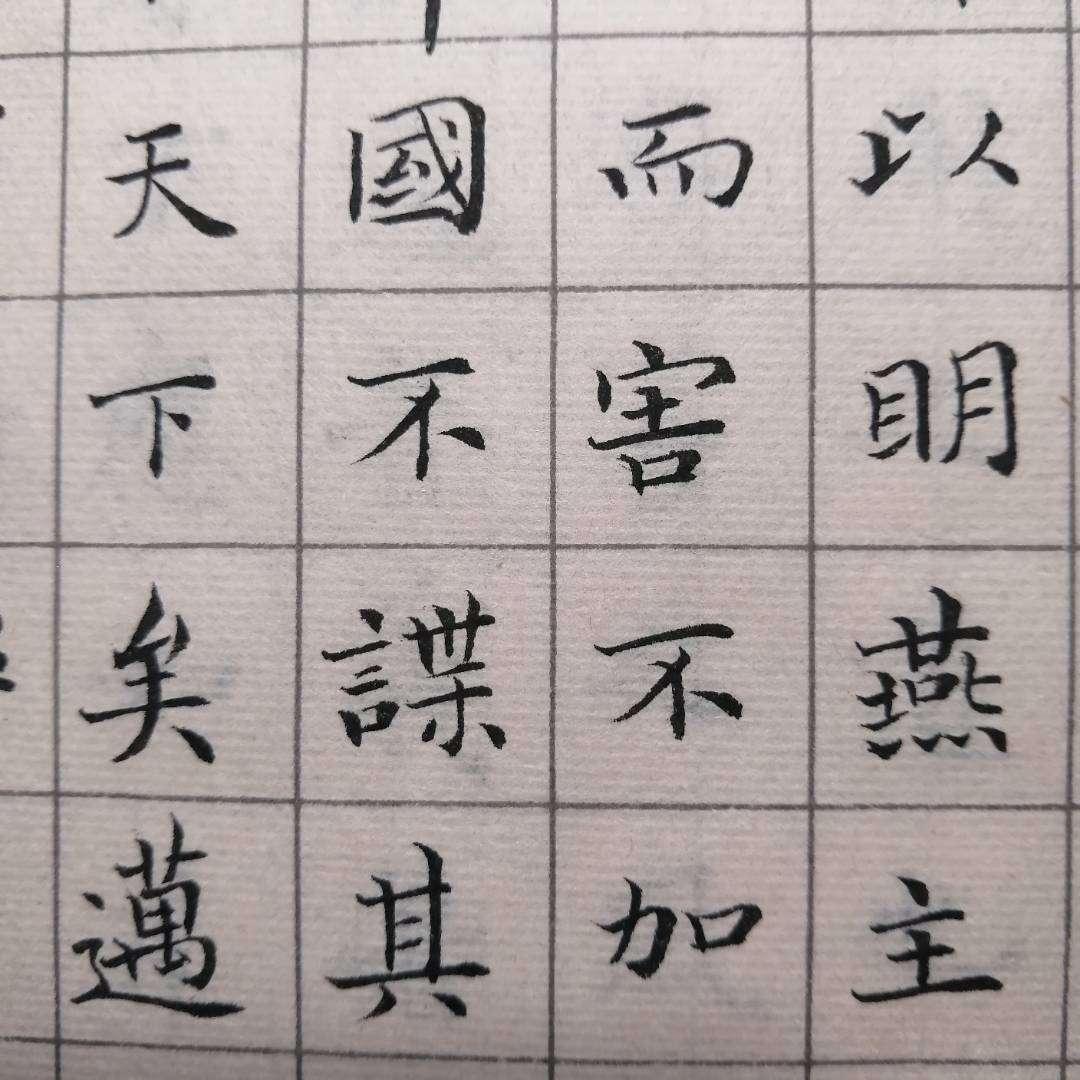 以眀燕主
而害不加
國不諜其
天下矣邁